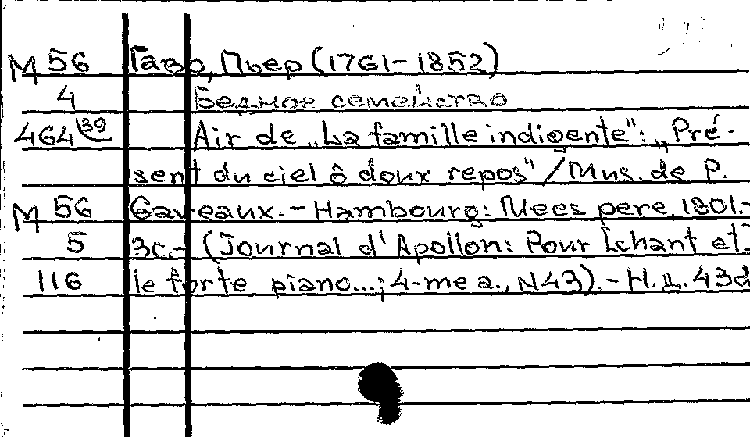 М 56 Гаво, Пьер (1761-1852)
4 Бедное семейство
464(39 Air de „La famille indigente": „Pré-
sent du ciel ô doux repos" / Mus. de P.
М 56 Gaveaux. - Hambourg: Mees pere, 1801.-
5 3с.- (Journal d'Apollon: Pour Lchant et
116 le forte piano...; 4-me a., N43). - Н.Д. 43d